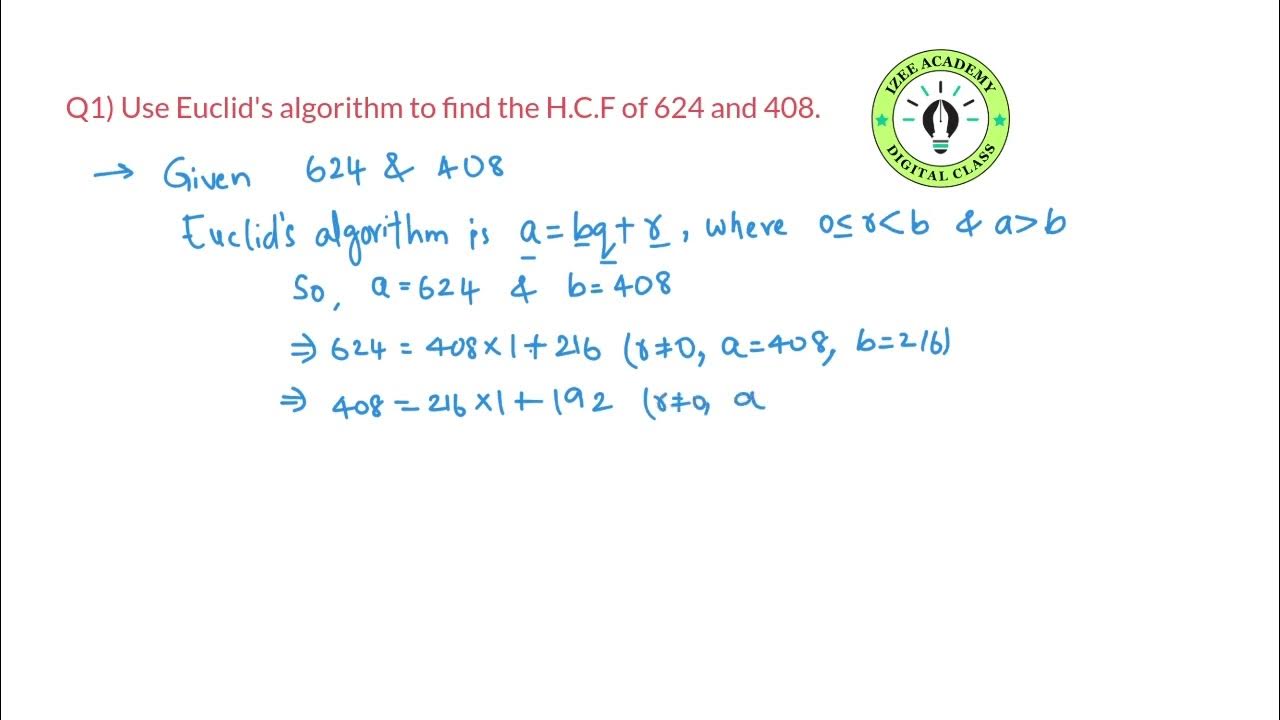 IZEE ACADEMY
DIGITAL CLASS
Q1) Use Euclid's algorithm to find the H.C.F of 624 and 408.
→ Given 624 & 408
Euclid's algorithm is a = bq + r, where 0 ≤ r < b & a > b
So, a = 624 & b = 408
⇒ 624 = 408 × 1 + 216 (r ≠ 0, a = 408, b = 216)
⇒ 408 = 216 × 1 + 192 (r ≠ 0, a